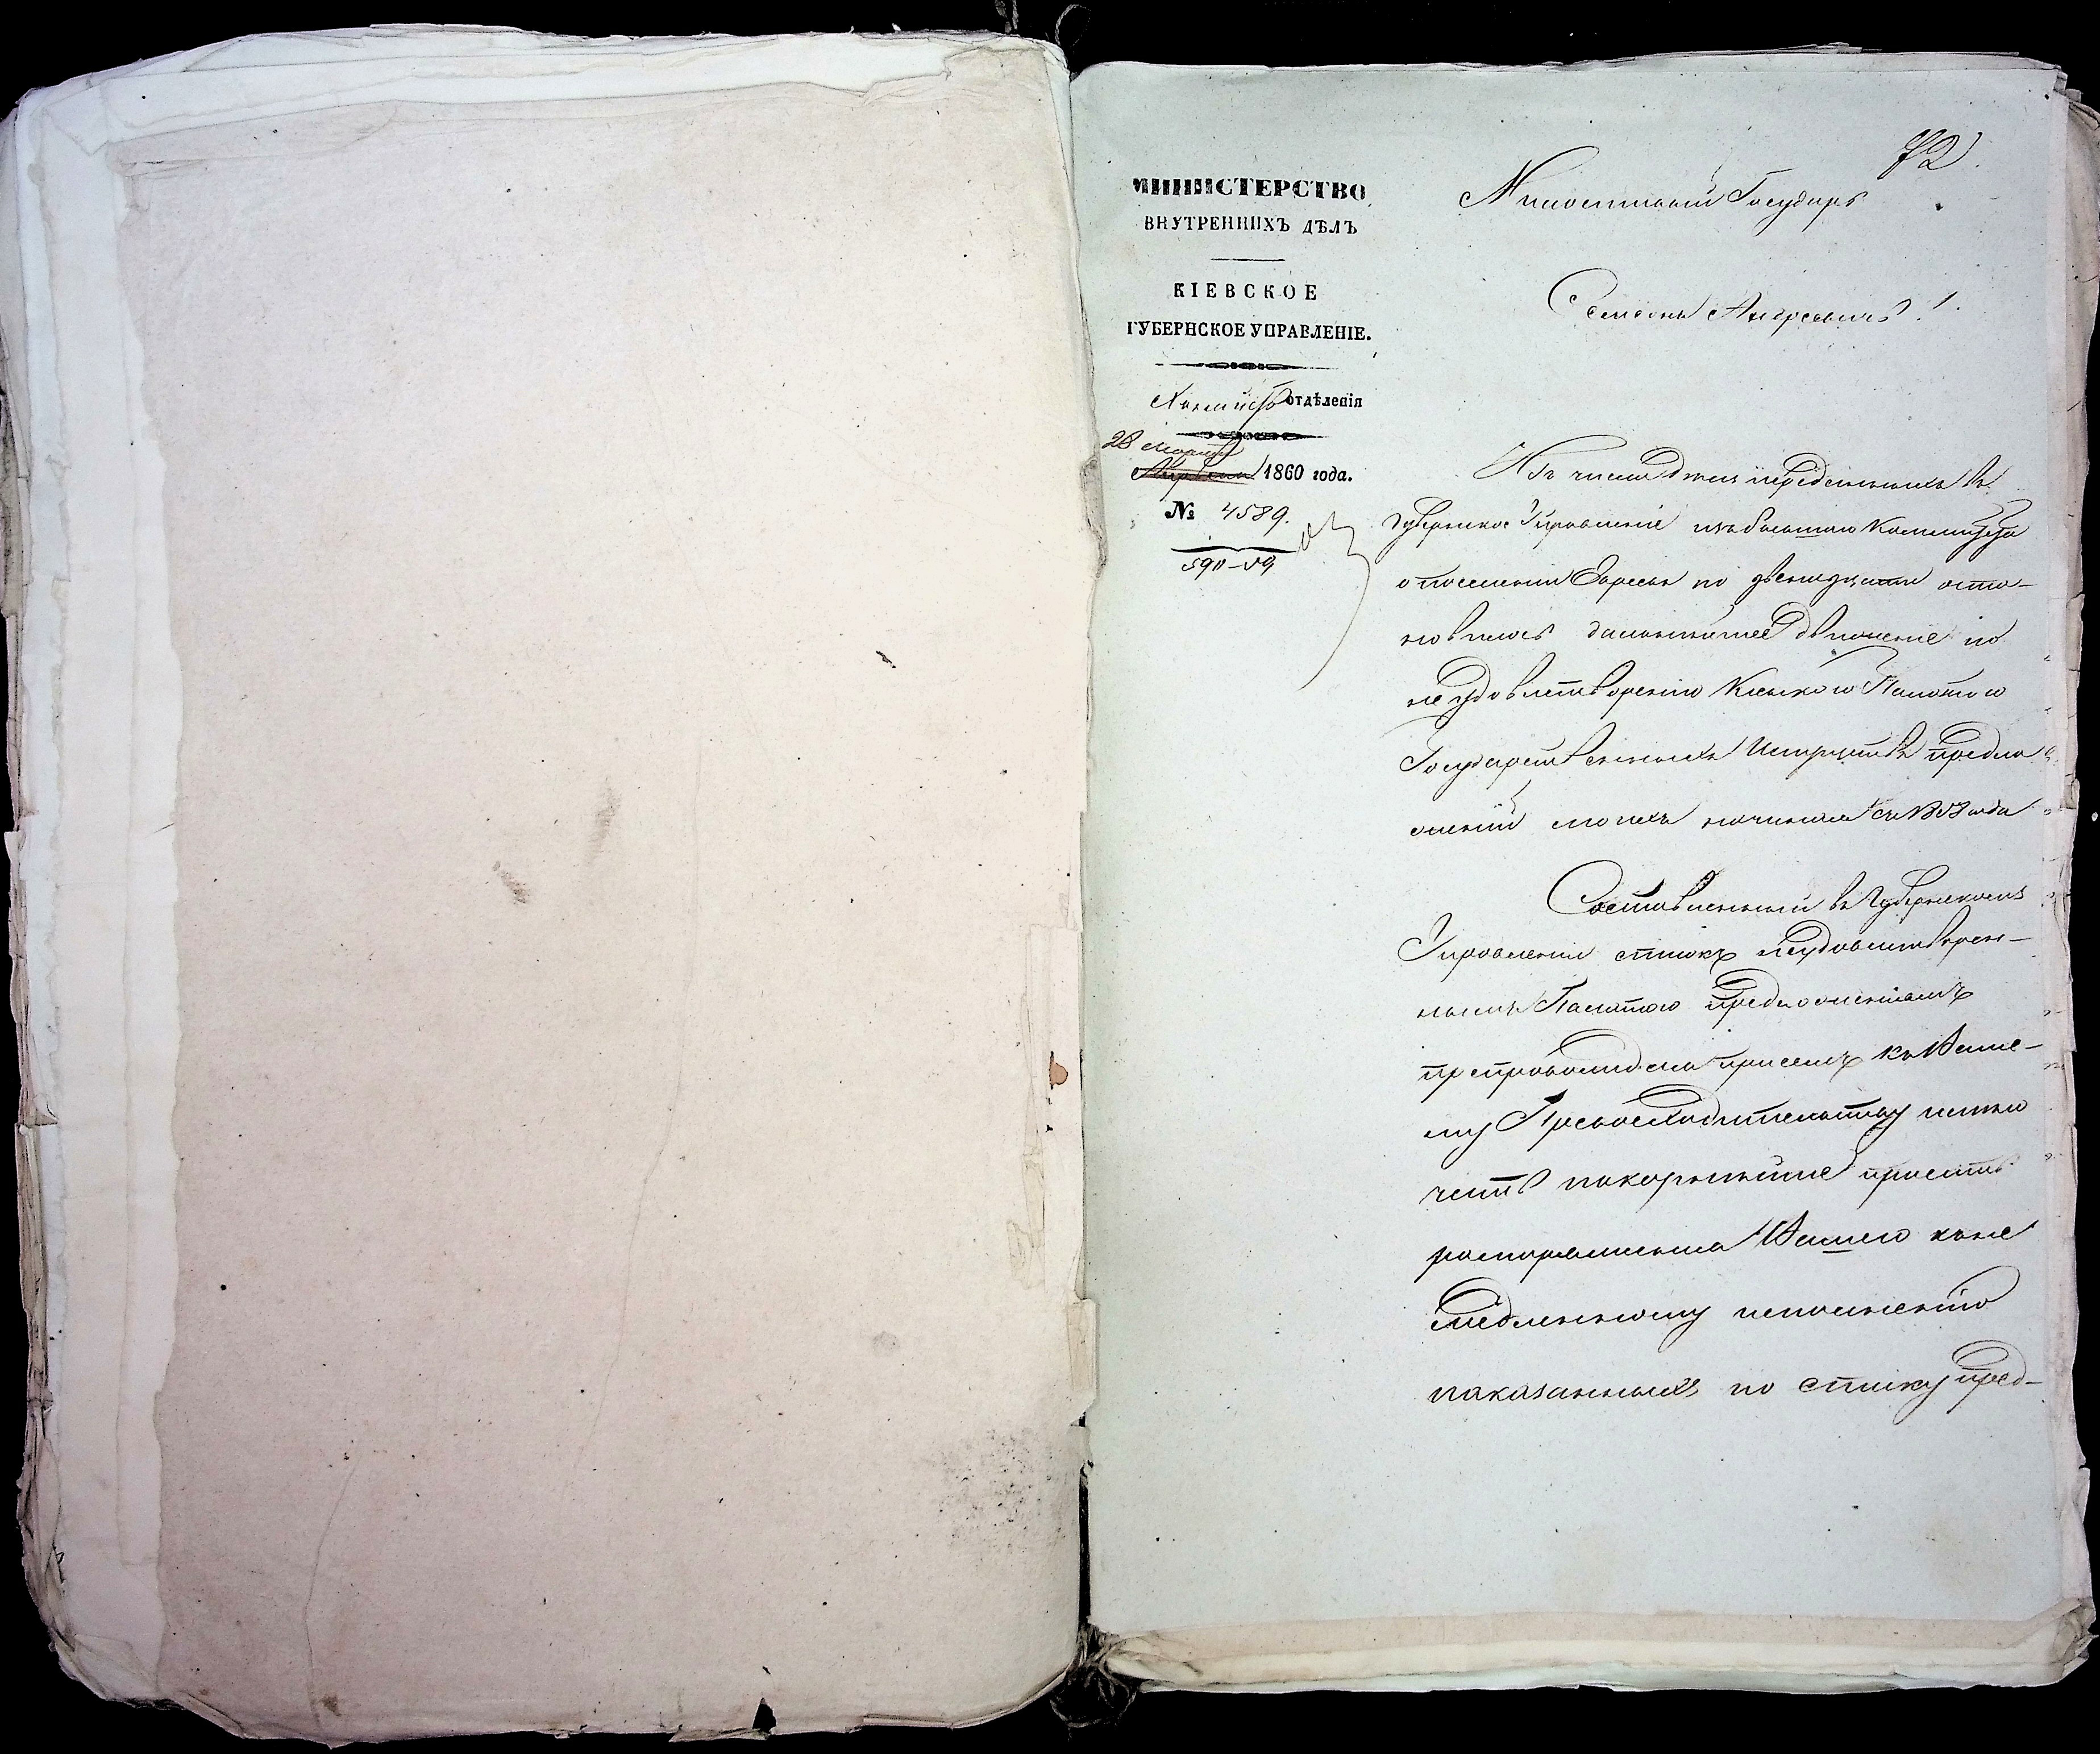 72.
МИНИСТЕРСТВО
ВНУТРЕННИХЪ ДѢЛЪ
КІЕВСКОЕ
ГУБЕРНСКОЕ УПРАВЛЕНІЕ.
отдѣленія
28 Марта
Апрѣля 1860 года.
№ 4589.
590-59
Милостивый Государь
Семенъ Андреевичъ!
Въ числѣ дѣлъ переданныхъ въ
Губернское Управленіе изъ бывшаго Комитета
о поселеніи Евреевъ по двенадцати оста-
новилось дальнѣйшее движеніе по
неудовлетворенію Кіевскою Палатою
Государственныхъ Имуществъ предло
женій моихъ начиная съ года
Составленный въ Губернскомъ
Управленіи списокъ неудовлетворен-
нымъ Палатою предложеніямъ
препровождая при семъ къ Ваше-
му Превосходительству имѣю
честь покорнѣйше просить
распоряженія Вашего къ не
медленному исполненію
показанныхъ по списку пред-